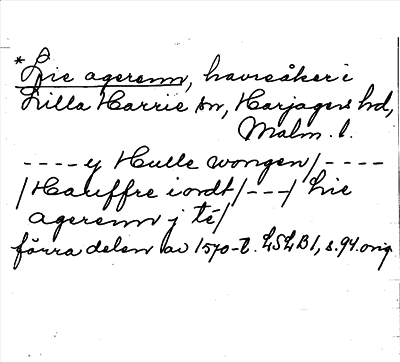 *Lie agerenn, havreåker i
Lilla Harrie sn, Harjagers hd,
Malm. l.
---- y Hulle wongen/----
/Hauffre iordt/---/ Lie
agerenn j té/
förra delen av 1570-t. LSLB1, s. 94. orig.